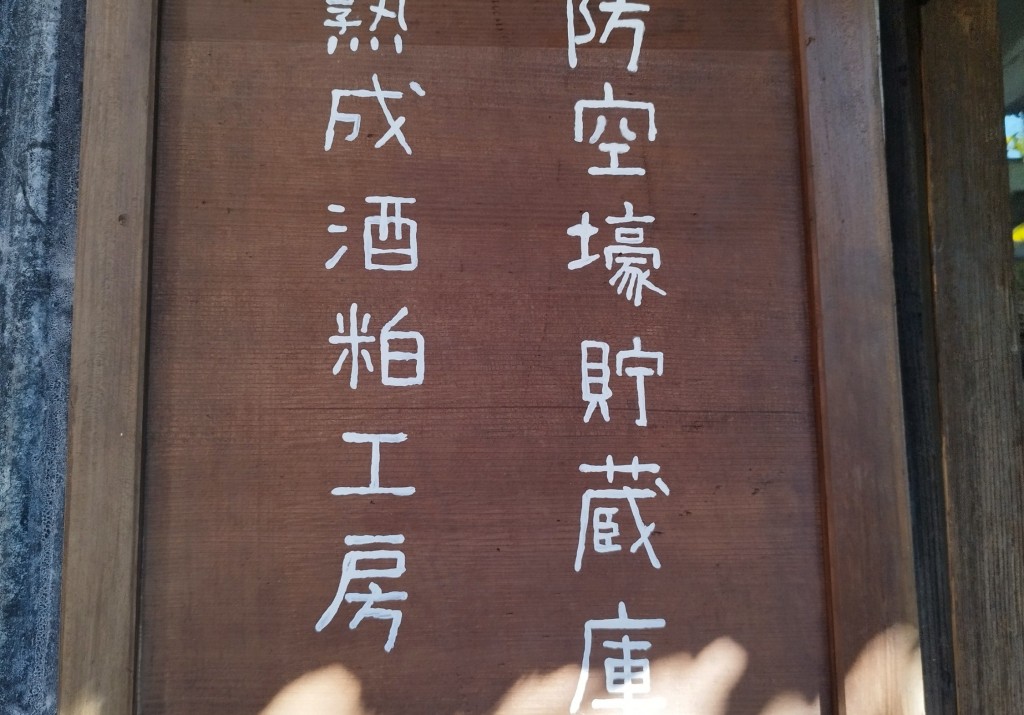 防空壕貯蔵庫
熟成酒粕工房